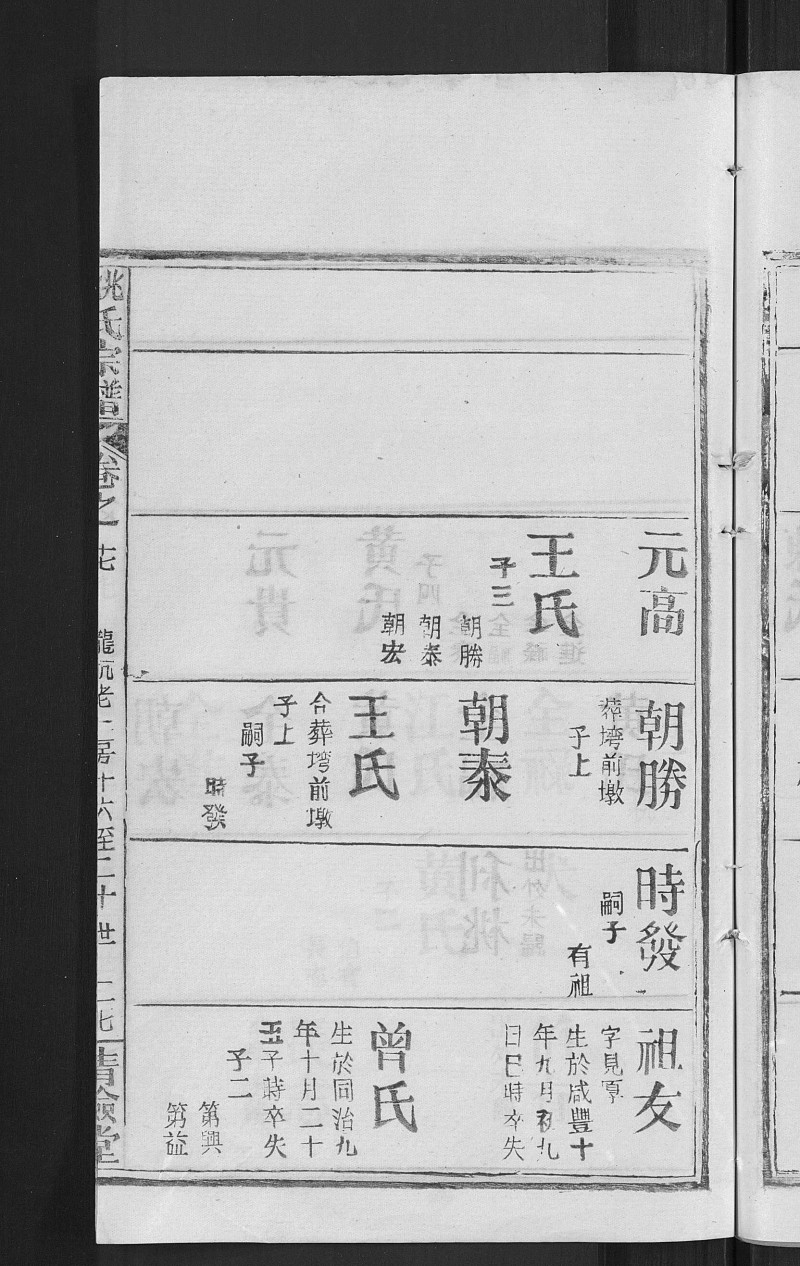 元高
王氏
子三
朝勝
朝泰
朝宏
朝勝
葬塆前墩
子上
朝泰
王氏
合葬塆前墩
子上
嗣子
時發
時發
嗣子
有祖
祖友
字見亨
生於咸豐十
年九月初九
日巳時卒失
曾氏
生於同治九
年十月二十
五子時卒失
子二
第興
第益
姚氏宗譜
卷之
十七
龍坑老二房十六至二十世
二七
清儉堂